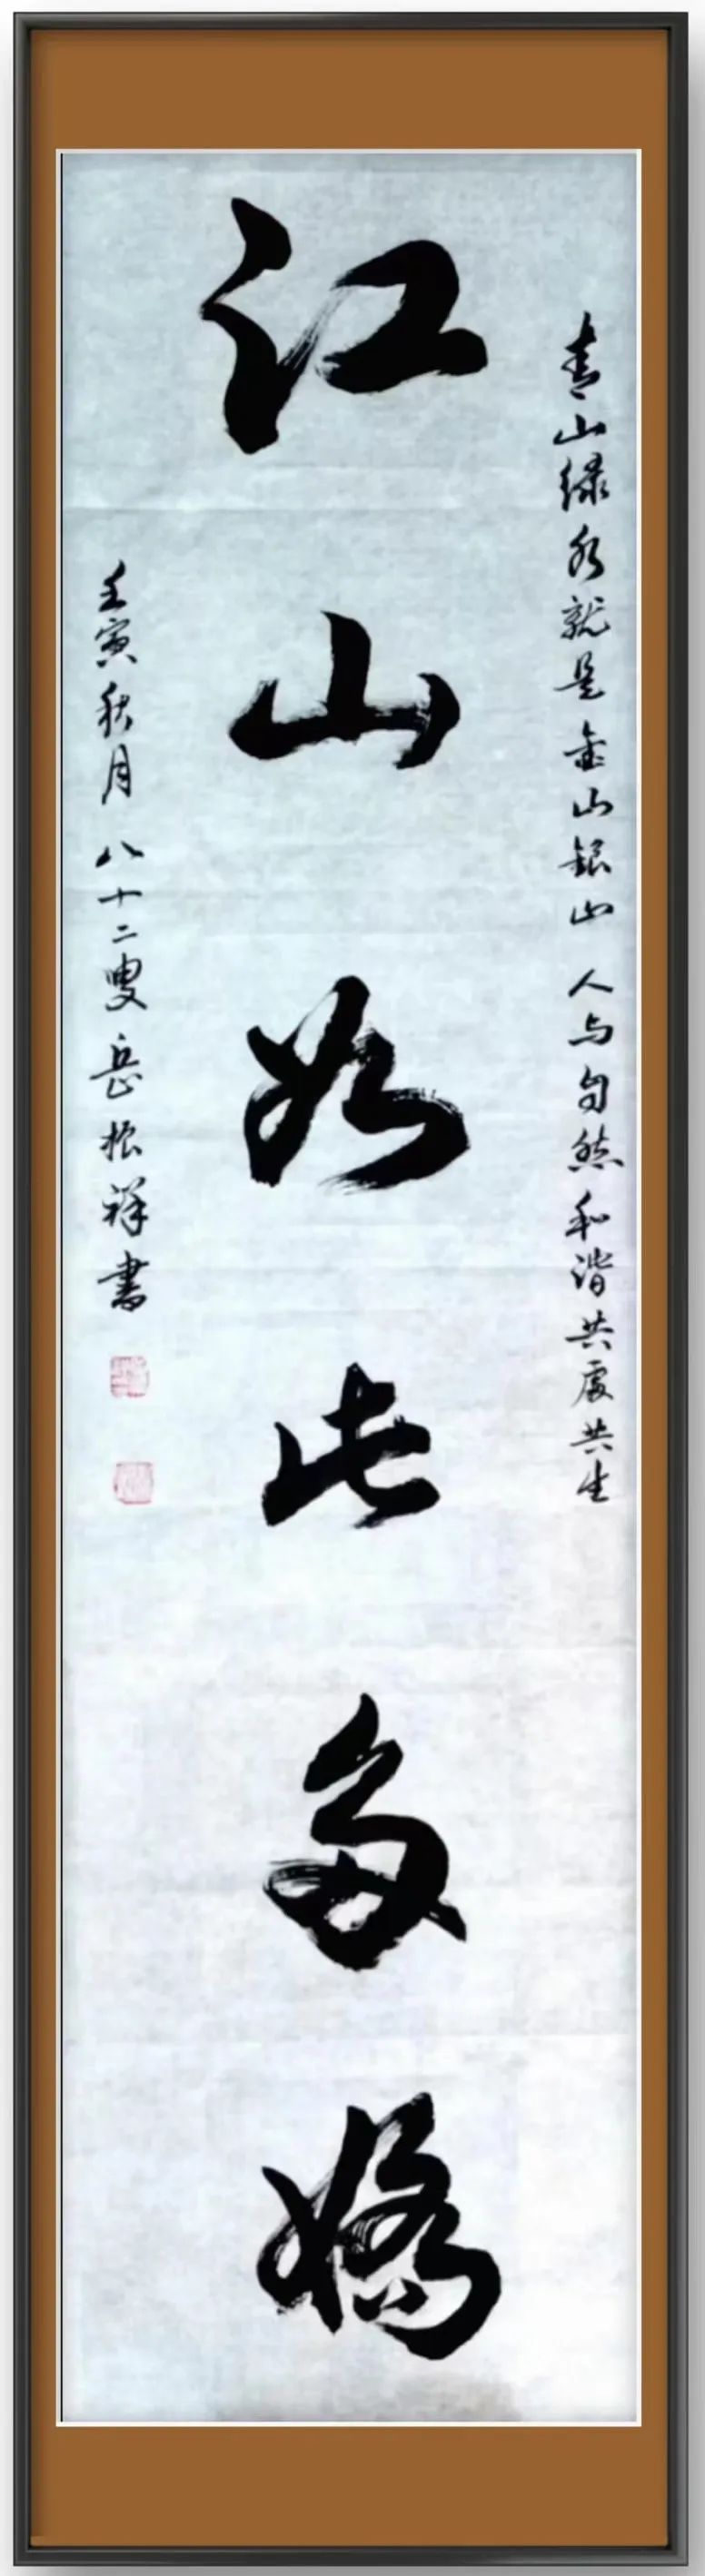 青山绿水就是金山银山 人与自然和谐共處共生
江山如此多娇
壬寅秋月 八十二叟岳振祥書